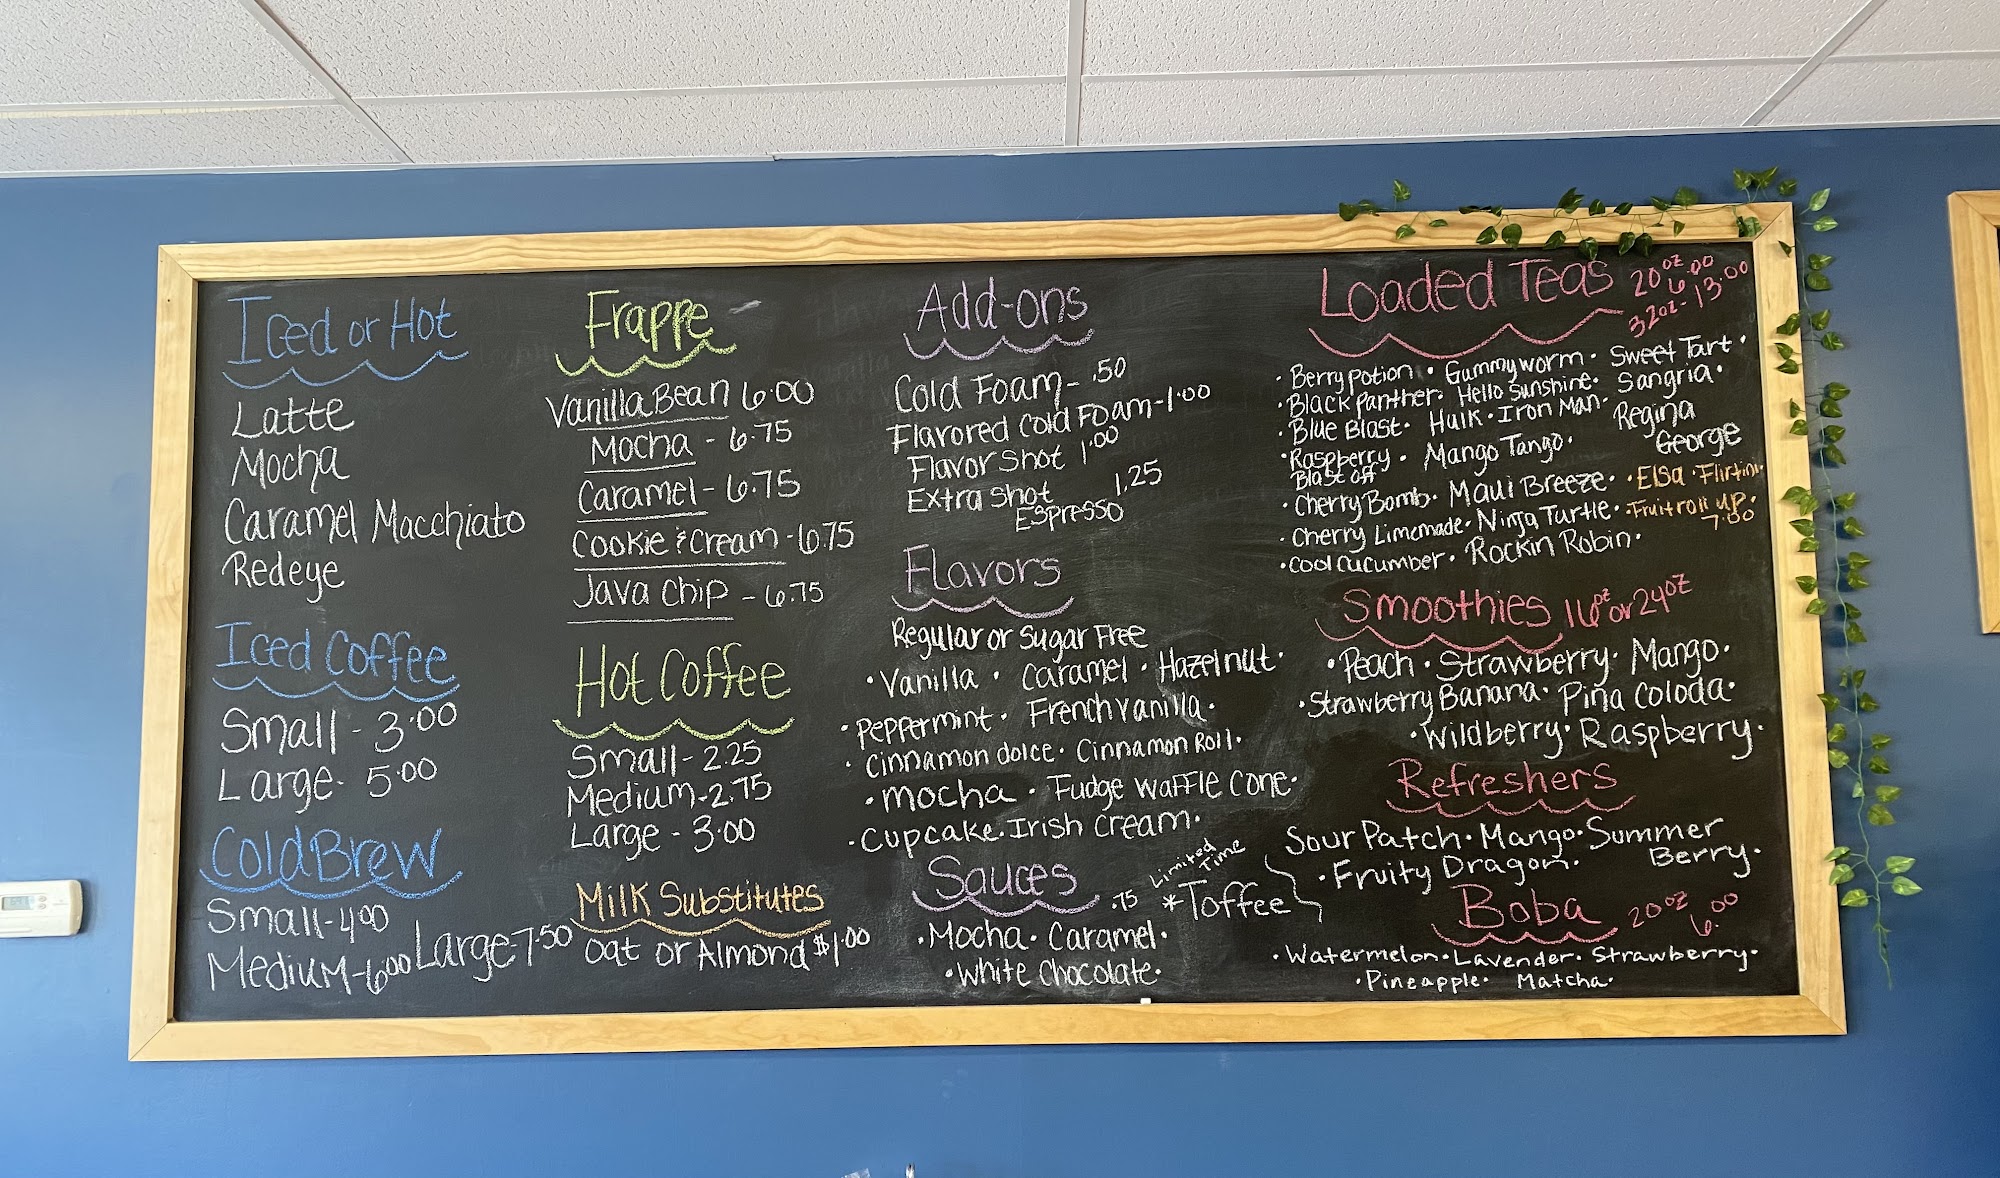 Iced or Hot
Latte
Mocha
Caramel Macchiato
Redeye
Iced Coffee
Small - 3.00
Large - 5.00
Cold Brew
Small - 4.00
Medium - 6.00 Large - 7.50
Frappe
Vanilla Bean 6.00
Mocha - 6.75
Caramel - 6.75
Cookie & Cream - 6.75
Java Chip - 6.75
Hot Coffee
Small - 2.25
Medium - 2.75
Large - 3.00
Milk Substitutes
oat or Almond $1.00
Add-ons
Cold Foam - .50
Flavored Cold Foam - 1.00
Flavor Shot 1.00
Extra Shot 1.25
Espresso
Flavors
Regular or Sugar Free
• Vanilla • Caramel • Hazelnut •
• Peppermint • French Vanilla •
• Cinnamon dolce • Cinnamon Roll •
• Mocha • Fudge Waffle Cone •
• Cupcake • Irish Cream •
Sauces .75
Limited Time
*Toffee
• Mocha • Caramel •
• White Chocolate •
Loaded Teas 20oz 6.00
32oz - 13.00
• Berry Potion • Gummy worm • Sweet Tart •
• Black Panther • Hello Sunshine • Sangria •
• Blue Blast • Hulk • Iron Man • Regina George
• Raspberry Blast off • Mango Tango •
• Cherry Bomb • Maui Breeze • • Elsa • Flirtini •
• Cherry Limemade • Ninja Turtle • • Fruit roll up •
7.00
• Cool Cucumber • Rockin Robin •
Smoothies 16oz or 24oz
• Peach • Strawberry • Mango •
• Strawberry Banana • Piña Coloda •
• Wildberry • Raspberry •
Refreshers
Sour Patch • Mango • Summer Berry •
• Fruity Dragon •
Boba 20oz 6.00
• Watermelon • Lavender • Strawberry •
• Pineapple • Matcha •